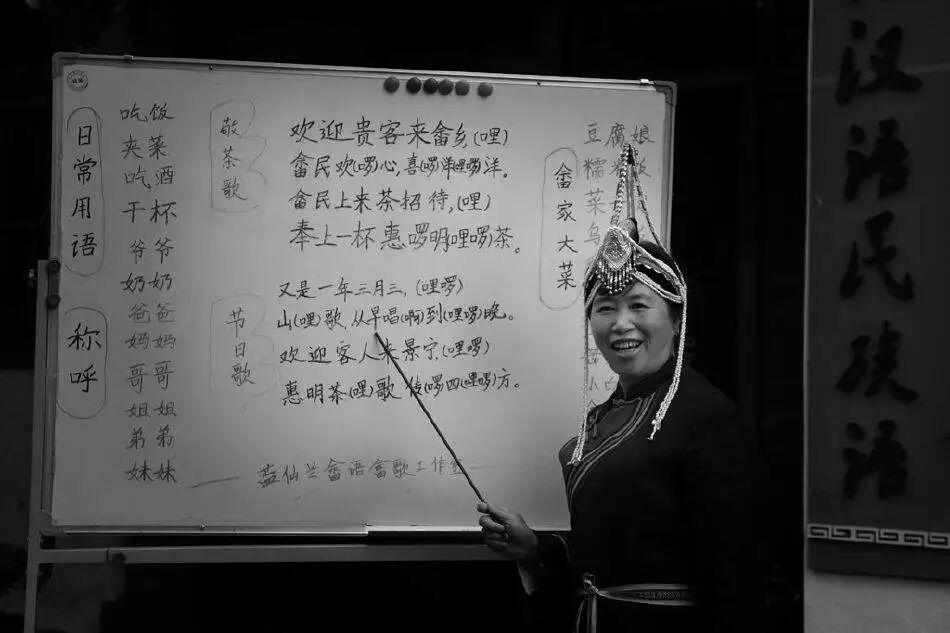 日常用语
吃饭
夹菜
吃酒
干杯
称呼
爷爷
奶奶
爸爸
妈妈
哥哥
姐姐
弟弟
妹妹
敬茶歌
欢迎贵客来畲乡,(哩)
畲民欢(啰)心,喜(啰)洋(哩啰)洋。
畲民上来茶招待,(哩)
奉上一杯惠(啰)明(哩啰)茶。
节日歌
又是一年三月三,(哩啰)
山(哩)歌,从早唱(啊)到(哩啰)晚。
欢迎客人来景宁,(哩啰)
惠明茶(哩)歌传(啰)四(哩啰)方。
蓝仙兰畲语畲歌工作室
畲家大菜
豆腐娘
糯
菜
乌
汉语民族语